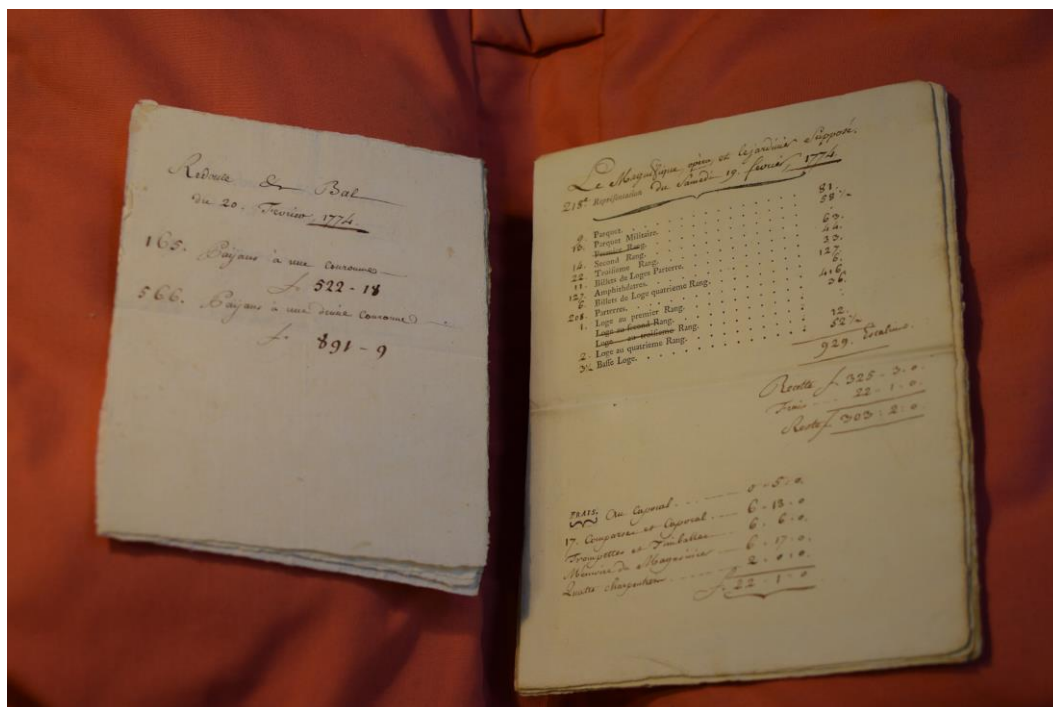 Redoute & Bal
du 20. Fevrier, 1774.
165. Païans à une couronne
f. 522 - 18
566. Païans à une demie Couronne
f. 891 - 9
Le Magnifique opera, et le jardinier Supposé.
218e. Représentation du Samedi 19. fevrier, 1774.
9. Parquet. 81.
13. Parquet Militaire. 58 ½
Premier Rang.
14. Second Rang. 63.
22. Troisieme Rang. 44.
11. Billets de Loges Parterre. 33.
127. Amphithéatres. 127.
6. Billets de Loge quatrieme Rang. 6.
208. Parterres. 416.
1. Loge au premier Rang. 36.
Loge au second Rang.
Loge au troisieme Rang.
2. Loge au quatrieme Rang. 12.
3½ Basse Loge. 52 ½
929. Escalins.
Recette f. 325 - 3 - 0.
Frais 22 - 1 - 0.
Reste f. 303 : 2 : 0.
FRAIS. Au Caporal 0 - 5 - 0.
17. Comparses et Caporal 6 - 13 - 0
Trompettes et Timballes 6 - 6 - 0.
Mémoire du Magasinier 6 - 17 - 0.
Quatre charpentiers 2 - 0 - 0.
f. 22 - 1 - 0